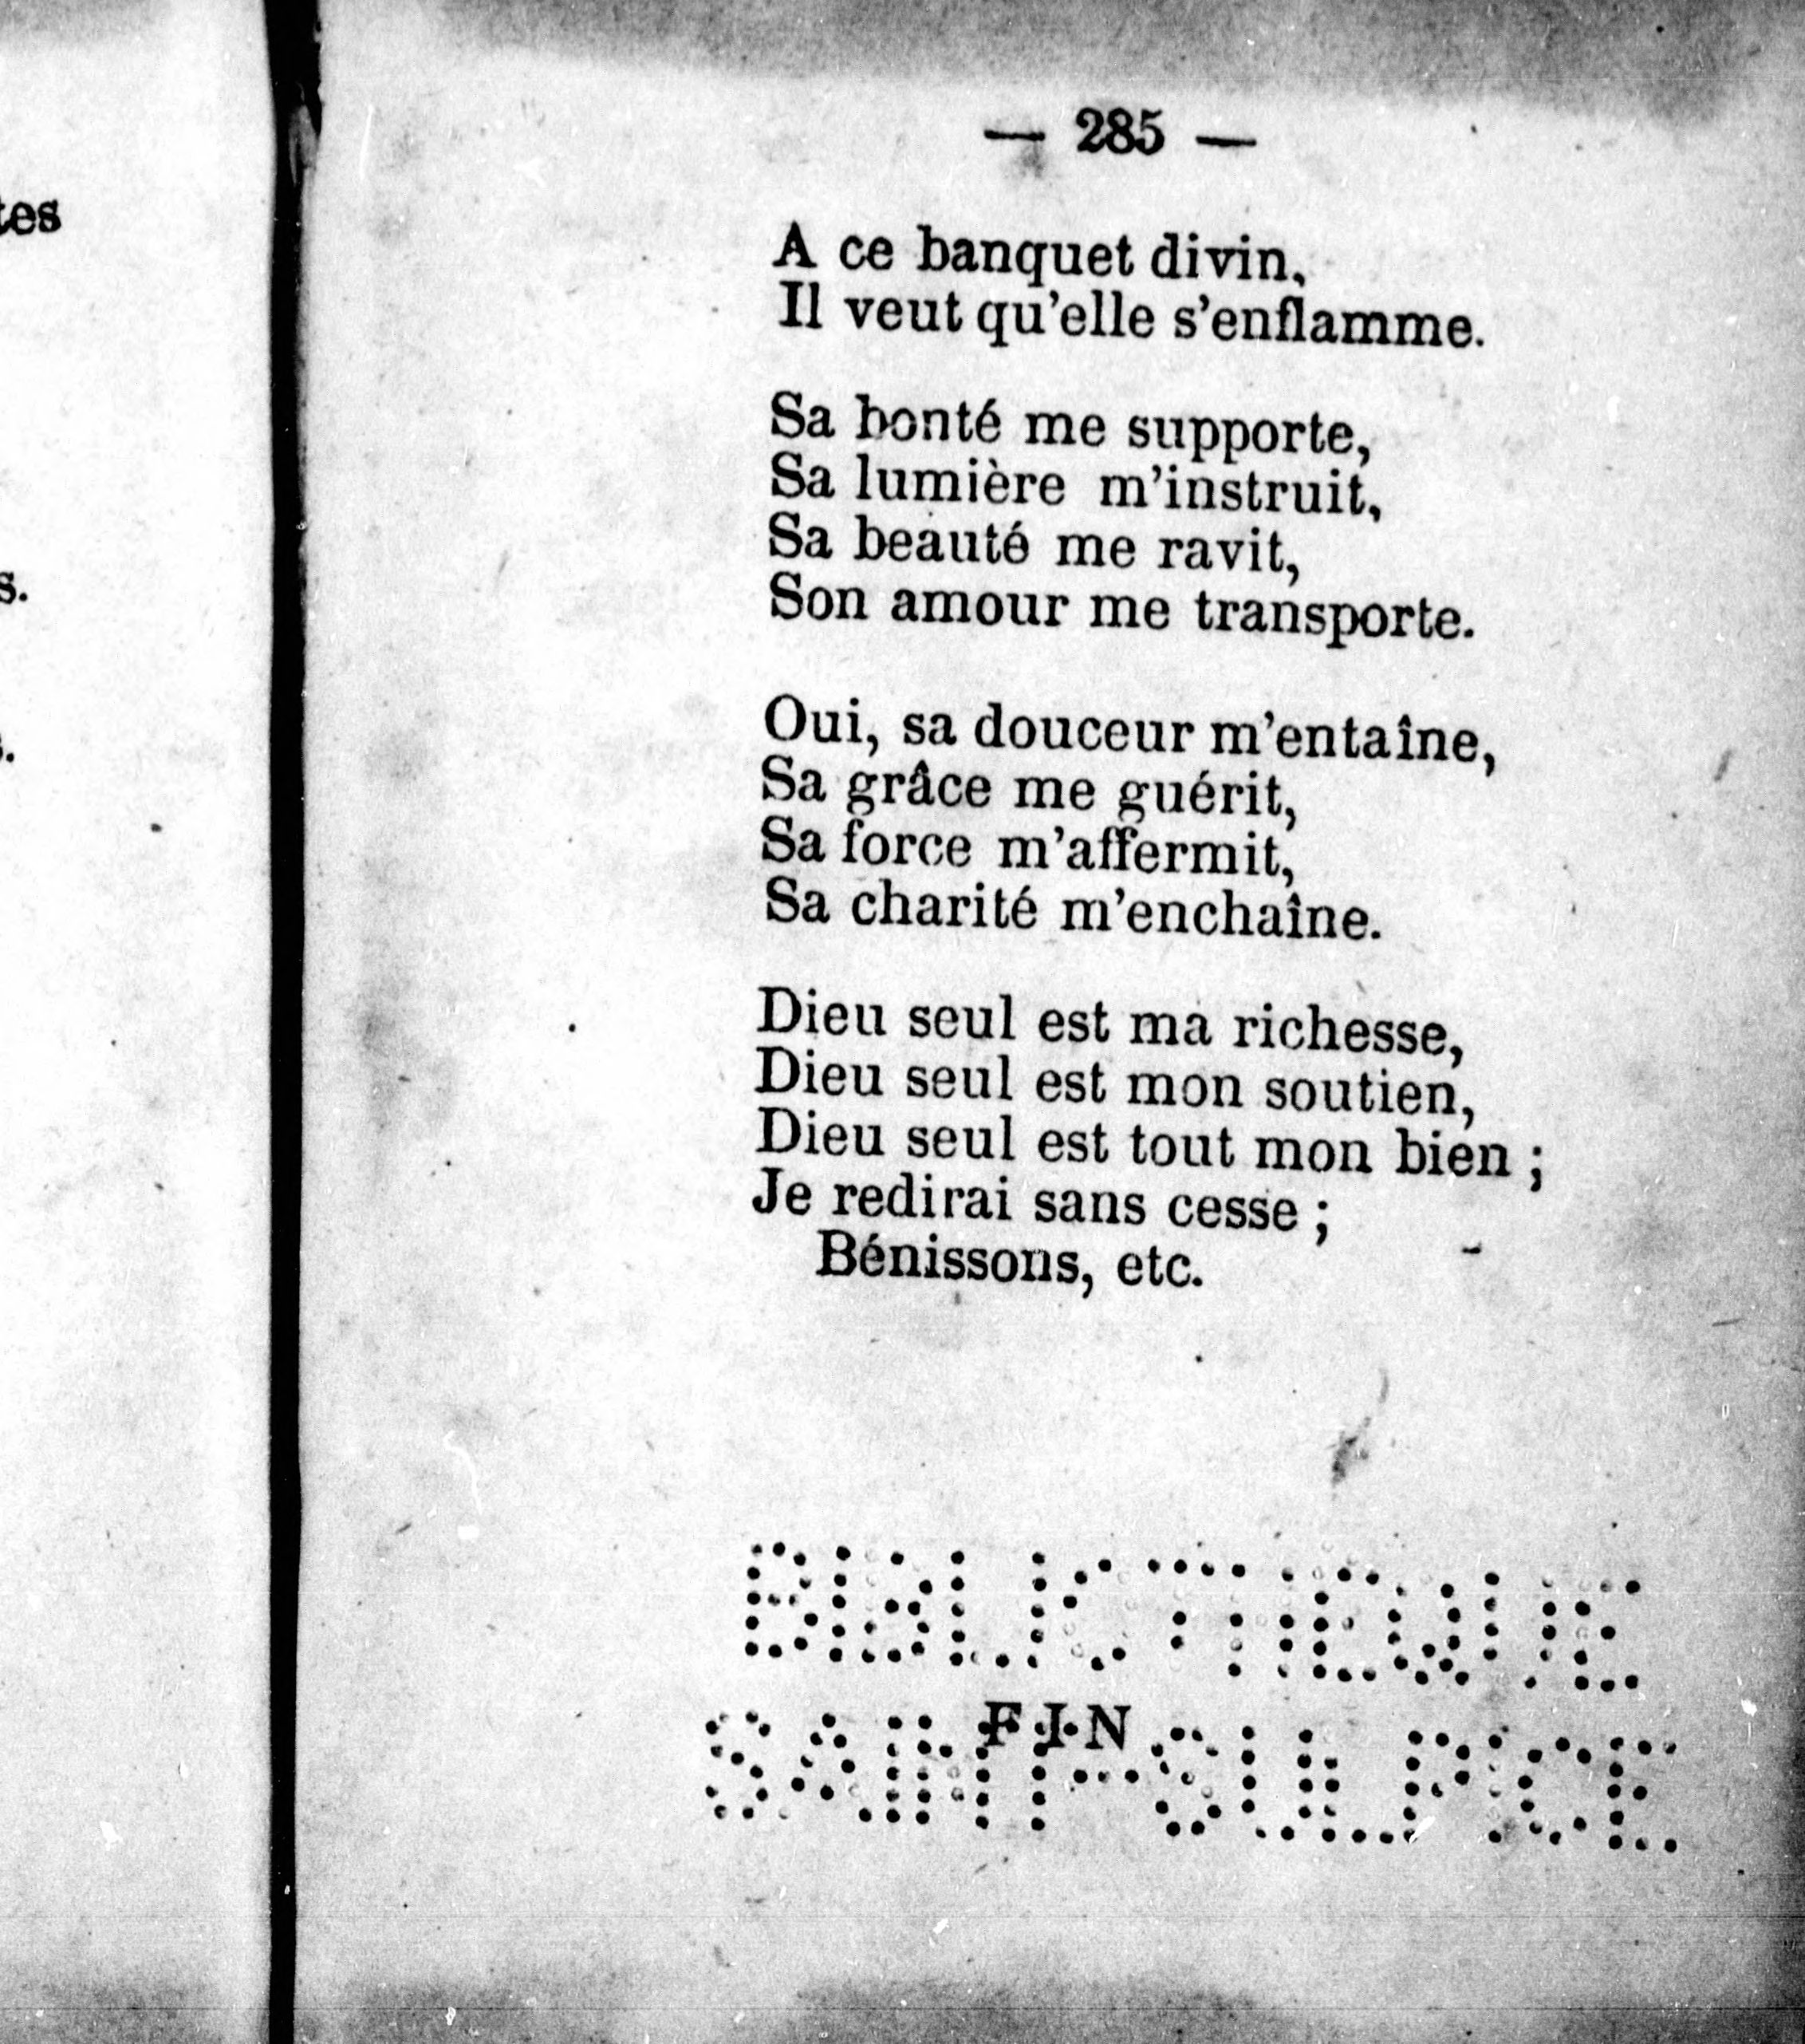 — 285 —
A ce banquet divin,
Il veut qu'elle s'enflamme.
Sa bonté me supporte,
Sa lumière m'instruit,
Sa beauté me ravit,
Son amour me transporte.
Oui, sa douceur m'entaîne,
Sa grâce me guérit,
Sa force m'affermit,
Sa charité m'enchaîne.
Dieu seul est ma richesse,
Dieu seul est mon soutien,
Dieu seul est tout mon bien ;
Je redirai sans cesse ;
Bénissons, etc.
BIBLIOTHEQUE
FIN
SAINT-SULPICE